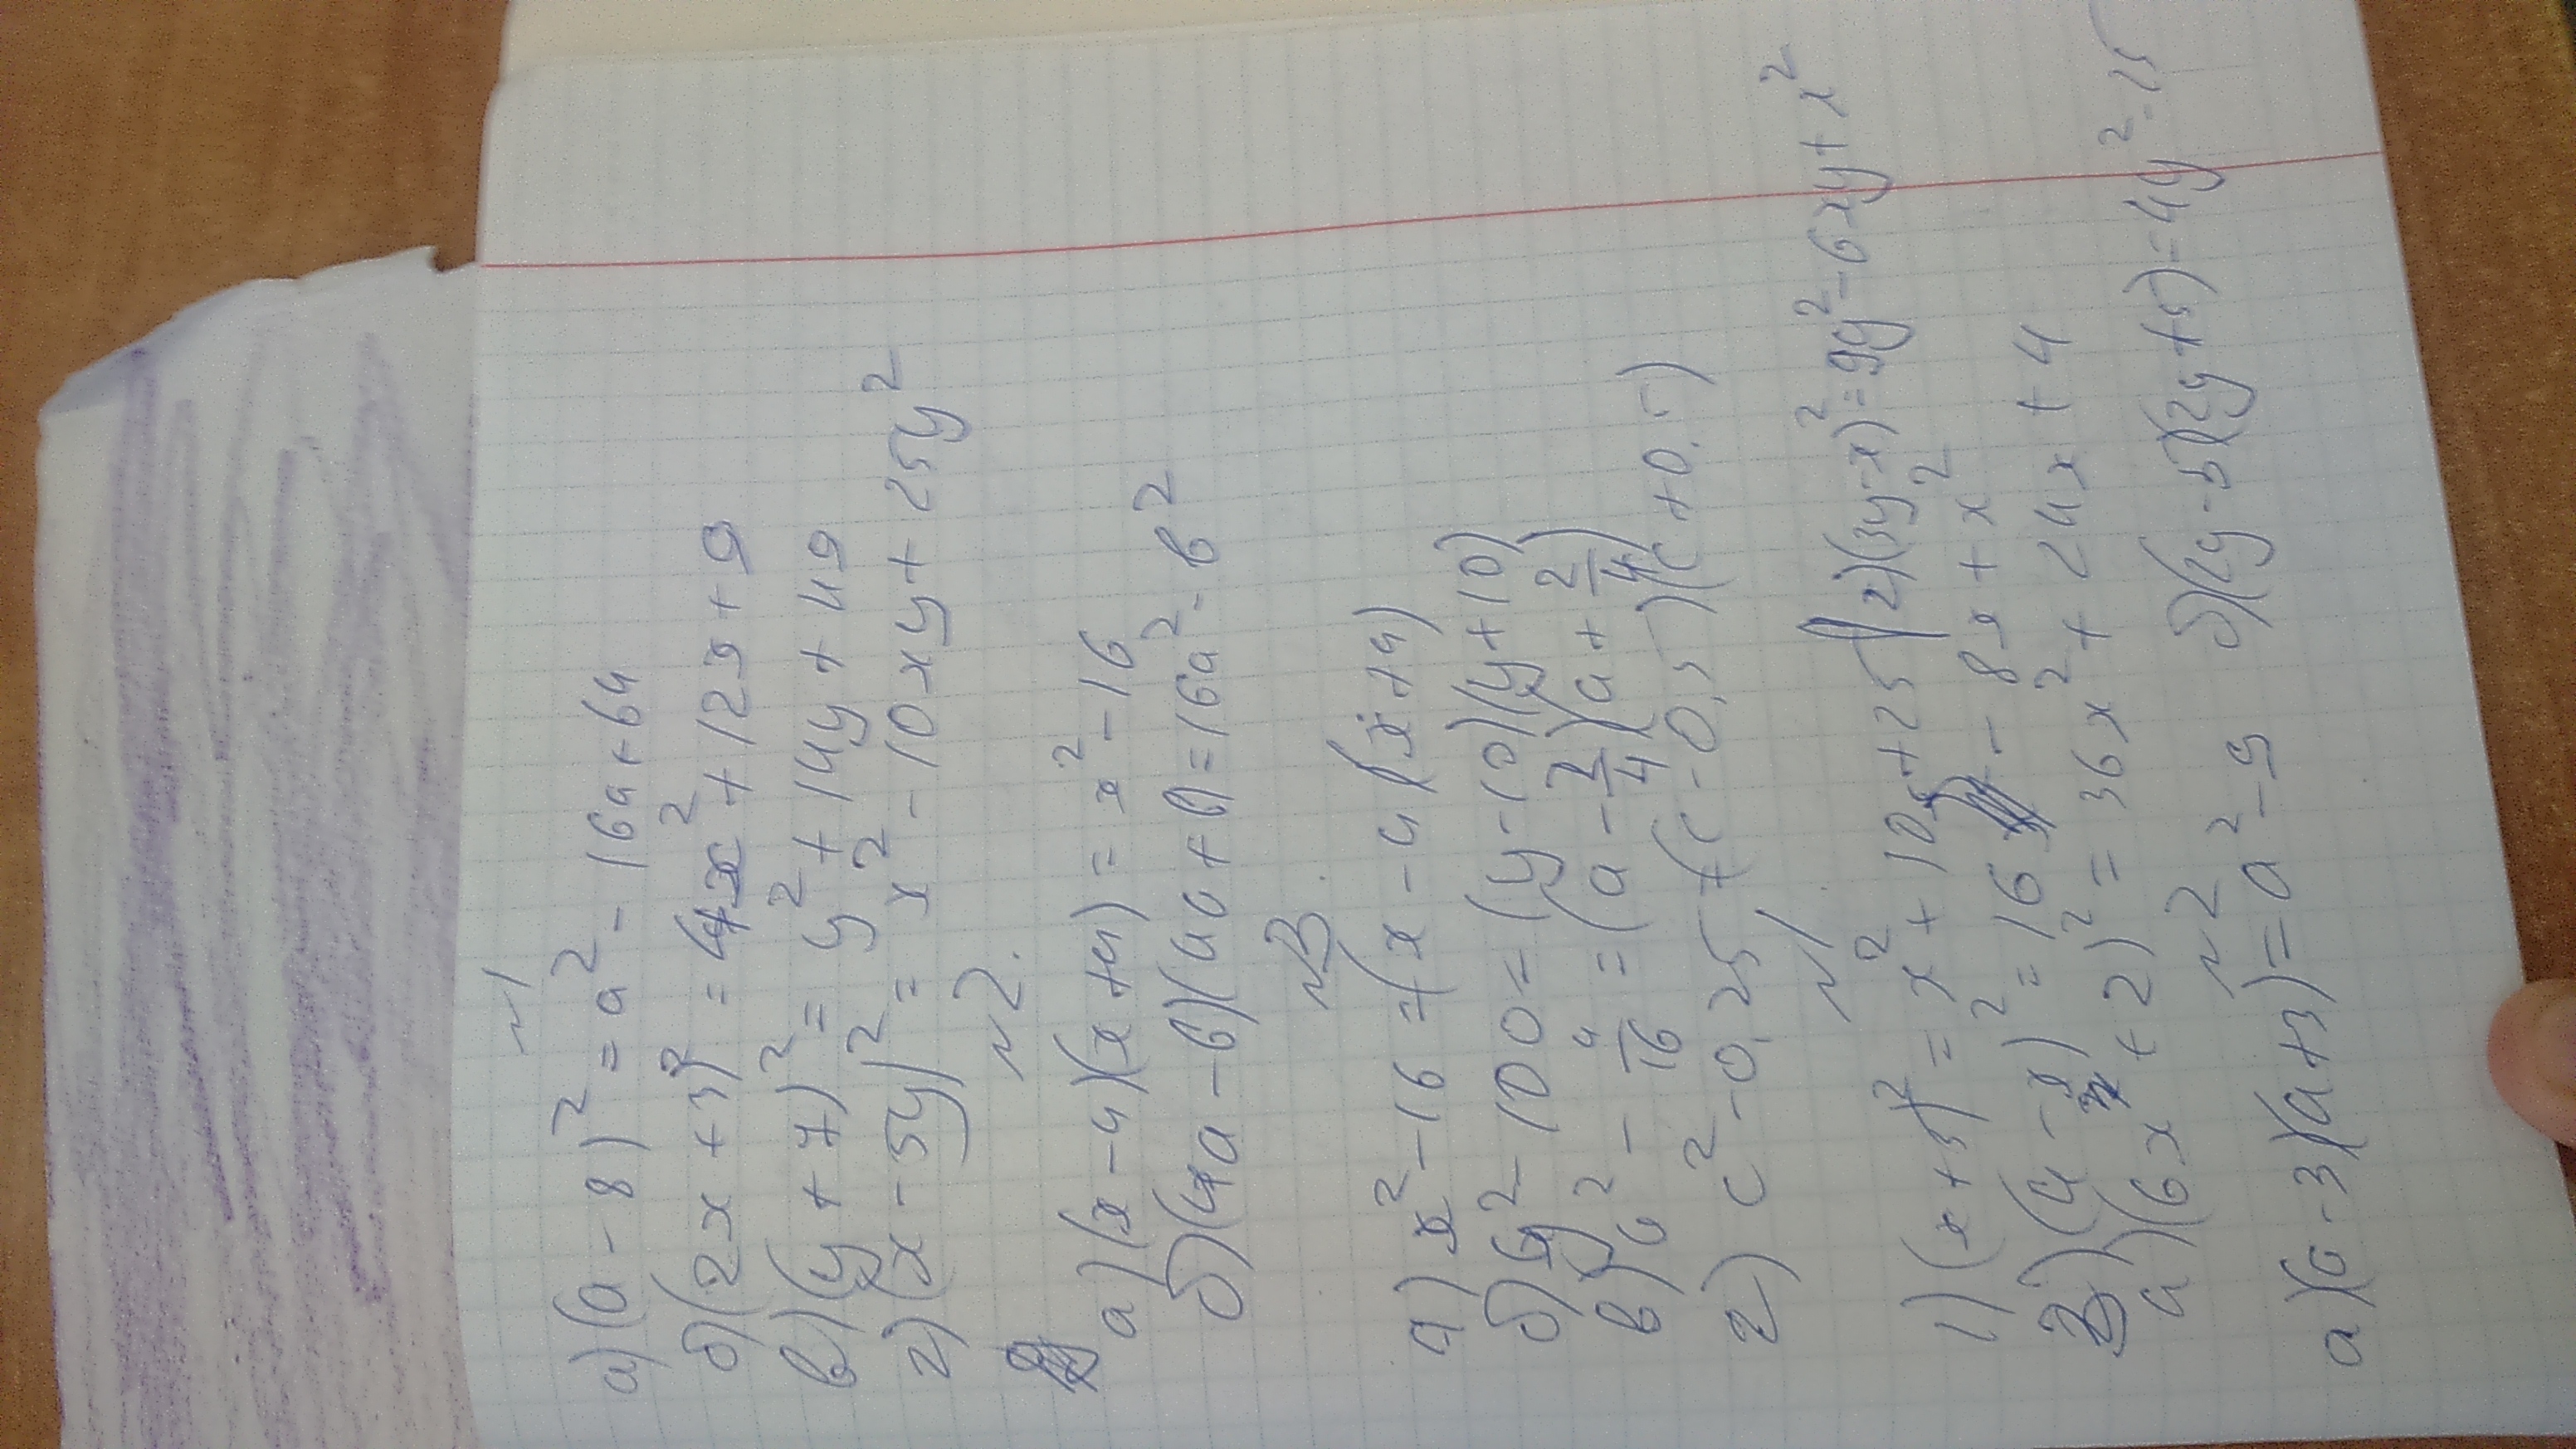 №1
а) (а - 8)² = а² - 16а + 64
б) (2x + 3)² = 4x² + 12x + 9
в) (y + 7)² = y² + 14y + 49
г) (x - 5y)² = x² - 10xy + 25y²
№2.
а) (x - 4)(x + 4) = x² - 16
б) (4а - в)(4а + в) = 16а² - в²
№3.
а) x² - 16 = (x - 4)(x + 4)
б) y² - 100 = (y - 10)(y + 10)
в) а² - 4/16 = (а - 2/4)(а + 2/4)
г) c² - 0,25 = (c - 0,5)(c + 0,5)
№1.
1) (x + 5)² = x² + 10x + 25 г) (3y - x)² = 9y² - 6xy + x²
(4 - x)² = 16 - 8x + x²
а) (6x + 2)² = 36x² + 24x + 4
№2
а) (а - 3)(а + 3) = а² - 9 б) (2y - 5)(2y + 5) = 4y² - 25